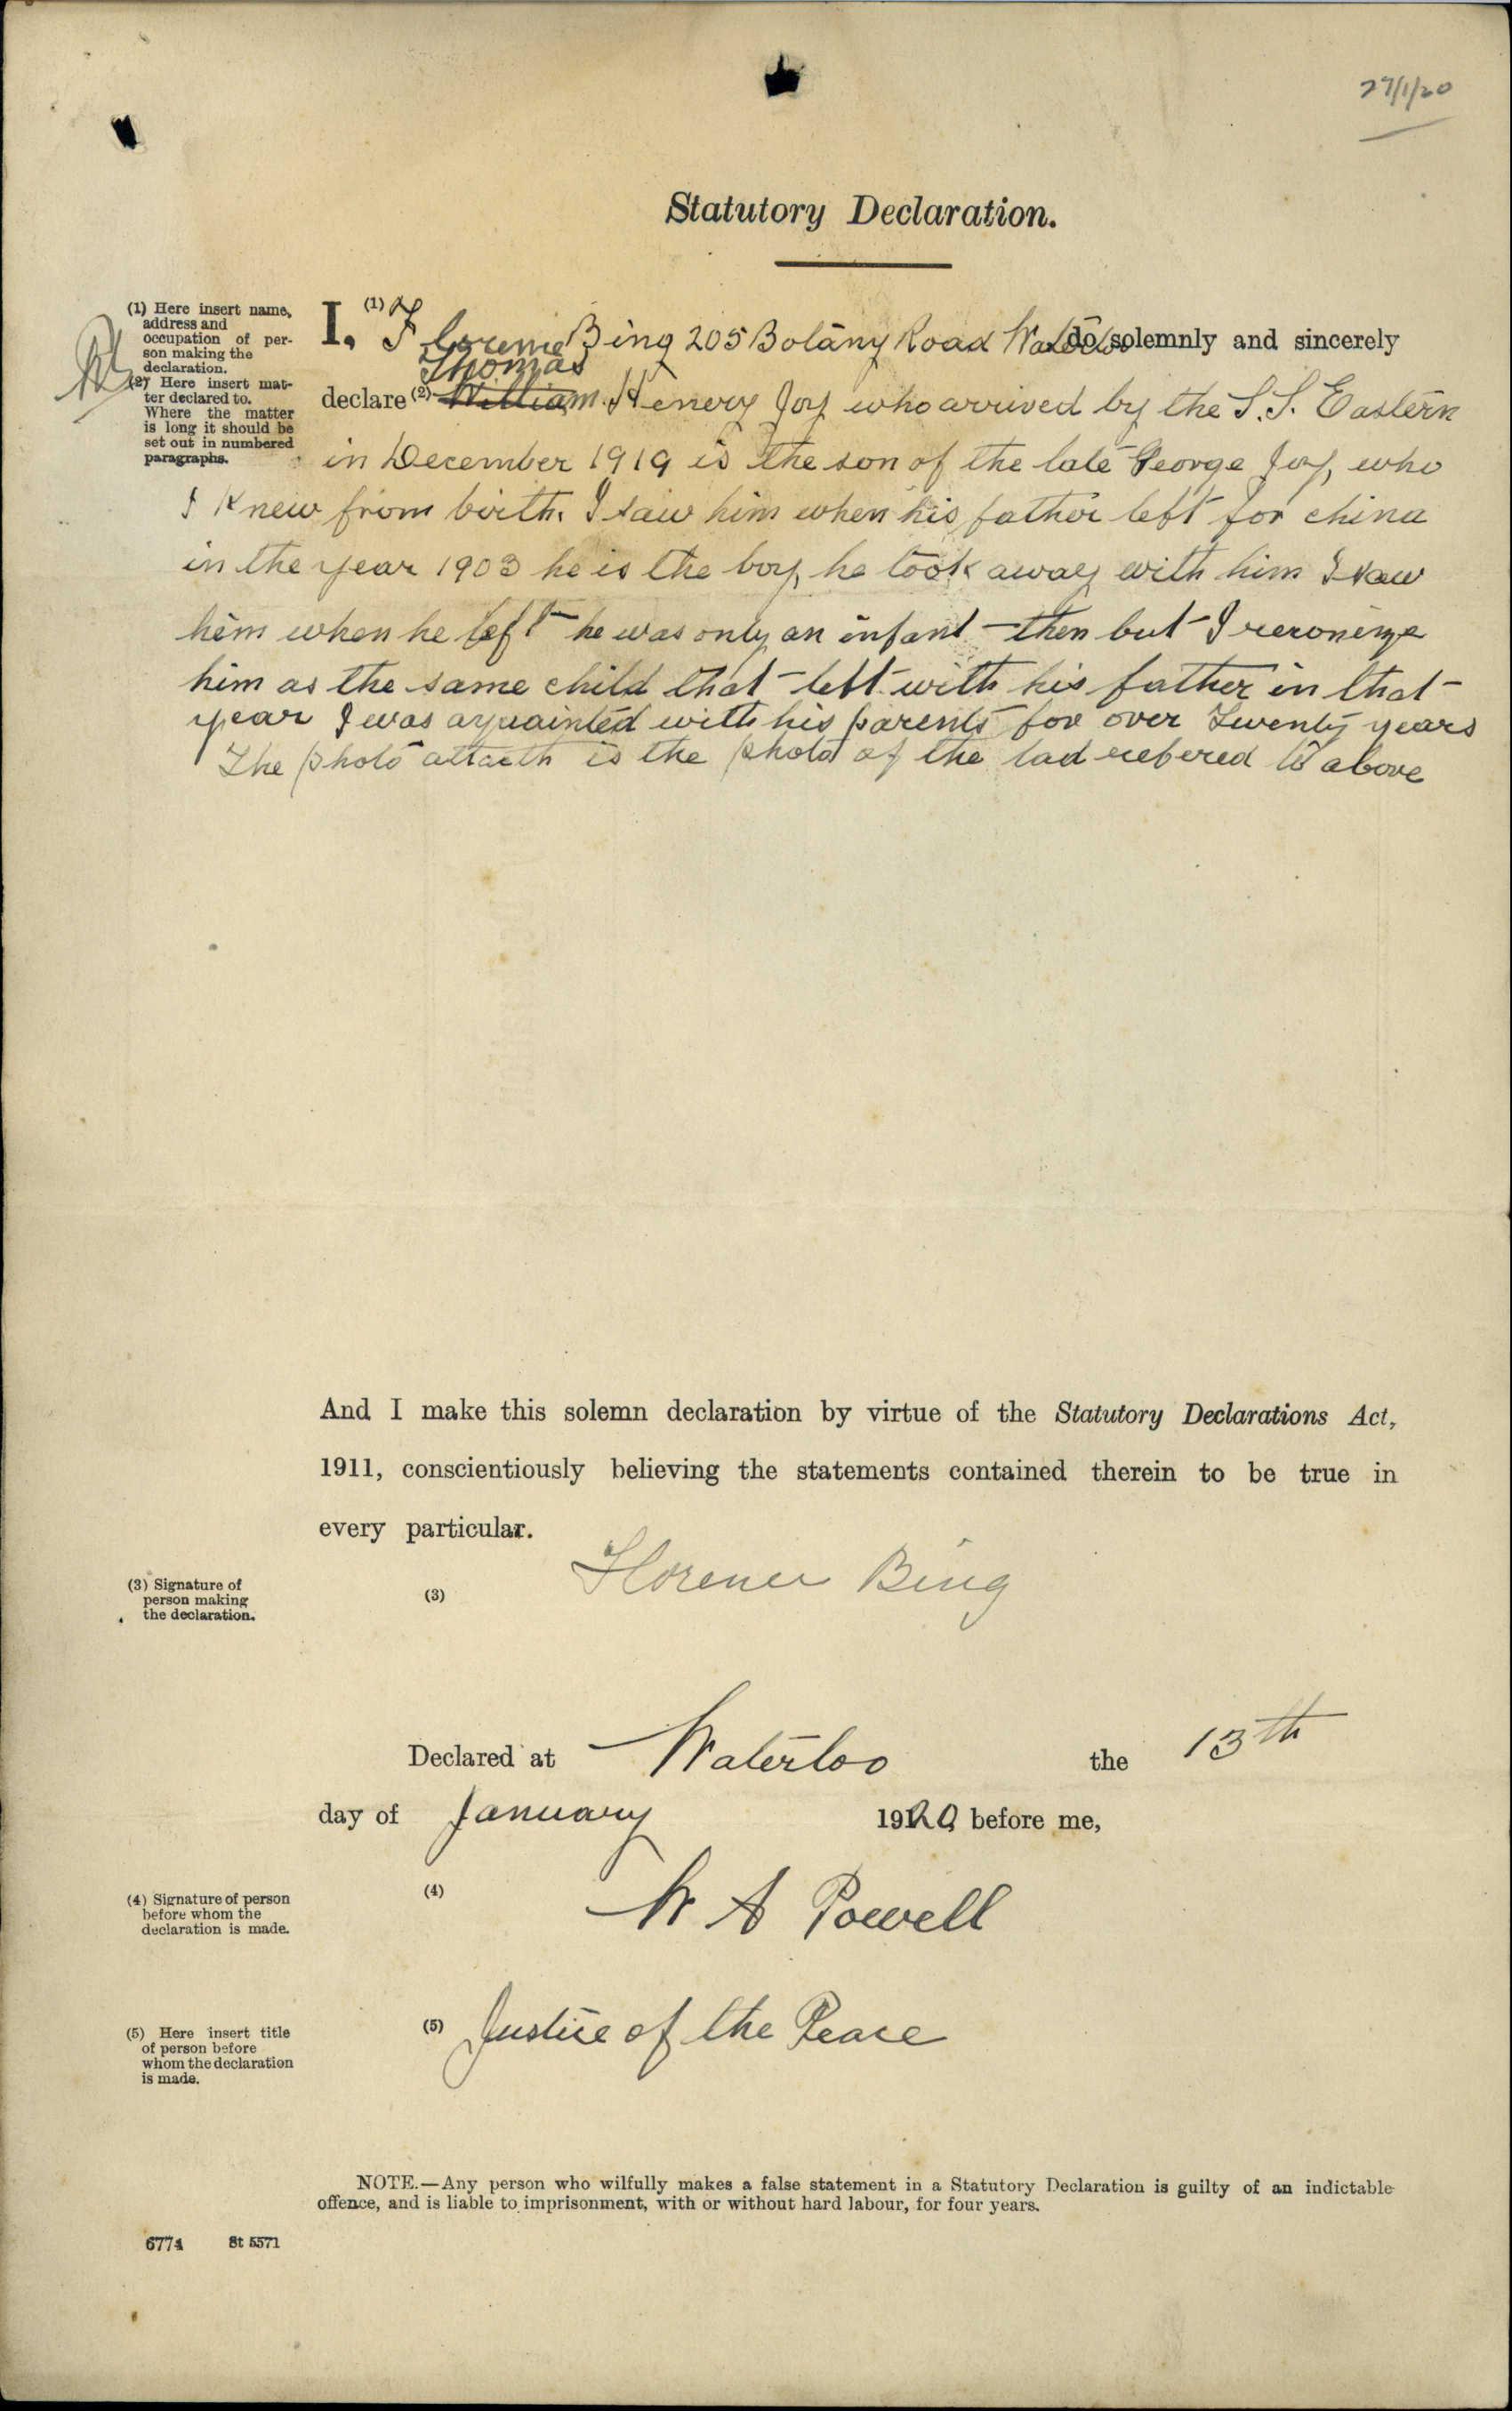 27/1/20
Statutory Declaration.
(1) Here insert name,
address and
occupation of per-
son making the
declaration.
(2) Here insert mat-
ter declared to.
Where the matter
is long it should be
set out in numbered
paragraphs.
I, (1) Florence Bing 205 Botany Road Waterloo do solemnly and sincerely
Thomas
declare (2) William Henery Joy who arrived by the S.S. Eastern
in December 1919 is the son of the late George Joy, who
I Knew from birth. I saw him when his father left for china
in the year 1903 he is the boy, he took away with him I saw
him when he left he was only an infant then but I reconize
him as the same child that left with his father in that
year I was aquainted with his parents for over twenty years
The photo attacth is the photo of the lad refered to above
And I make this solemn declaration by virtue of the Statutory Declarations Act,
1911, conscientiously believing the statements contained therein to be true in
every particular.
(3) Signature of
person making
the declaration.
(3) Florence Bing
Declared at Waterloo the 13th
day of January 1920 before me,
(4) Signature of person
before whom the
declaration is made.
(4) W A Powell
(5) Here insert title
of person before
whom the declaration
is made.
(5) Justice of the Peace
NOTE.—Any person who wilfully makes a false statement in a Statutory Declaration is guilty of an indictable
offence, and is liable to imprisonment, with or without hard labour, for four years.
6774 St 5571